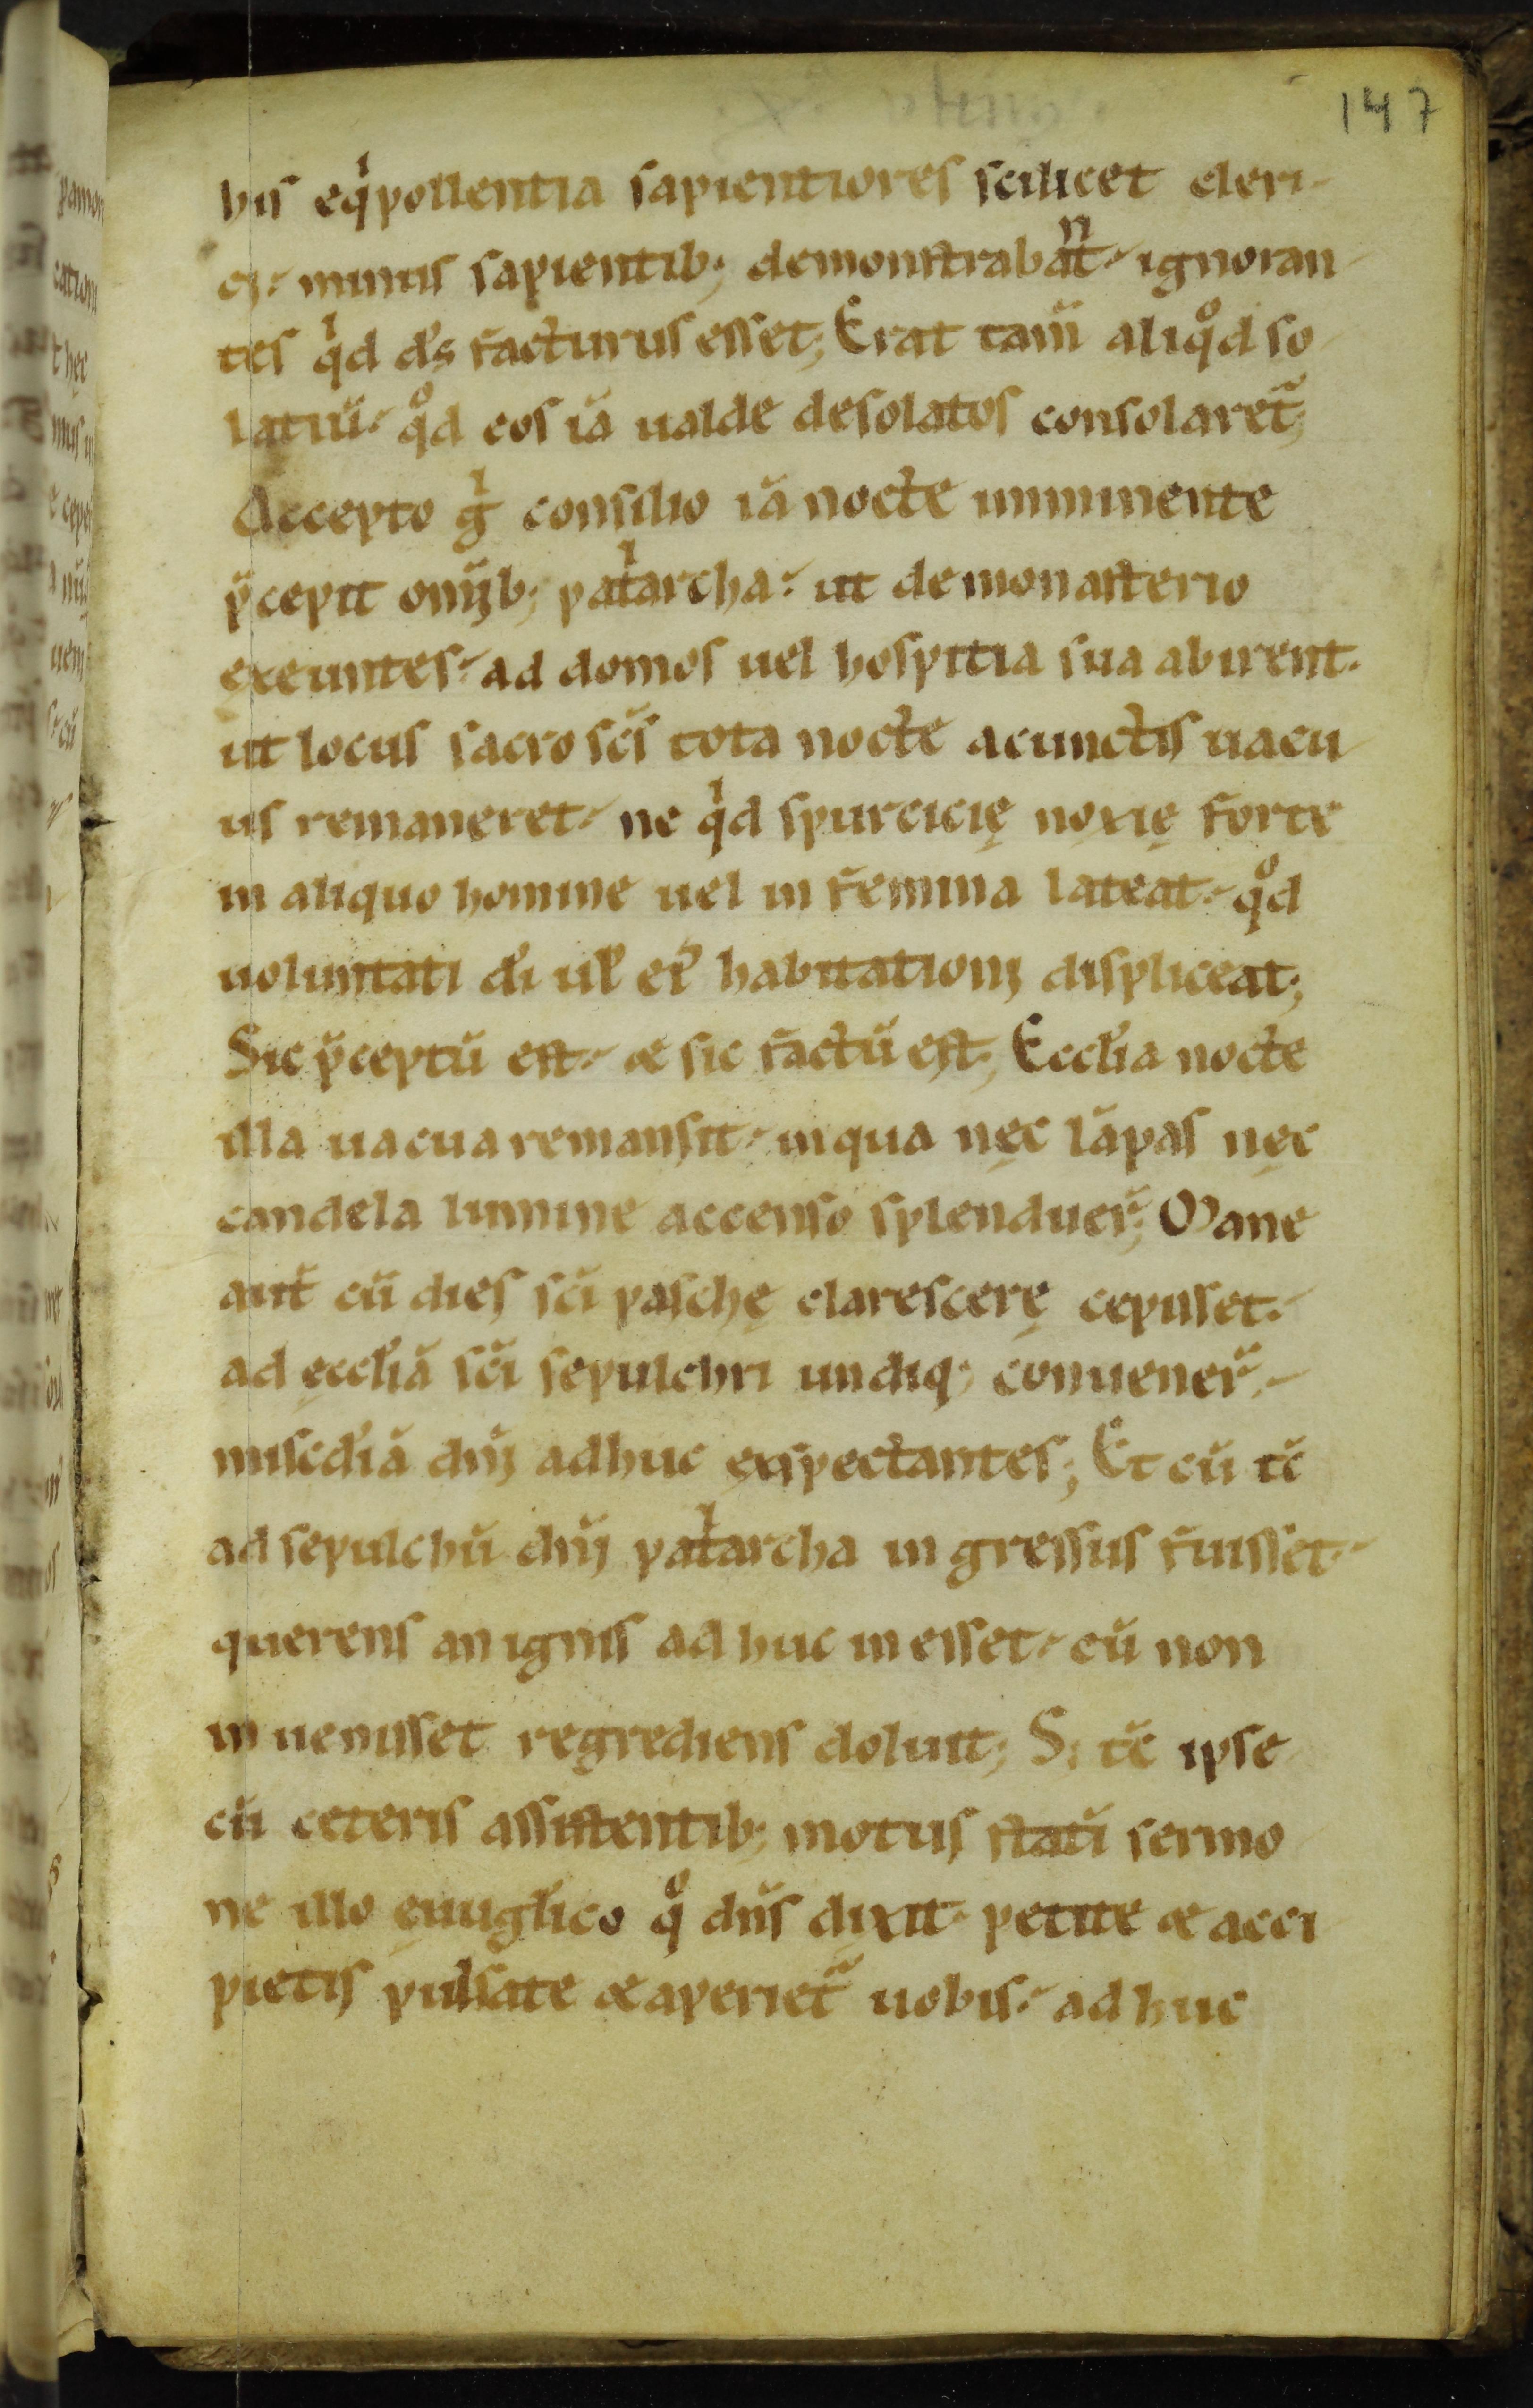 147
his eqͥpollentia sapientiores scilicet cleri-
ci. minus sapientib; demonstrabant. ignoran-
tes qͥd dꝰs facturus esset; Erat tam̄ aliqͦd so-
latiū. qͦd eos iā ualde desolatos consolaret᷑;
Accepto gͥ consilio iā nocte imminente
p̄cepit om̄ib; patͥarcha. ut de monasterio
exeuntes. ad domos uel hospitia sua abirent.
ut locus sacro sc̄s tota nocte a cunctis uacu-
us remaneret. ne qͥd spurcicię noxię forte
in aliquo homine uel in femina lateat. qͦd
uoluntati dī ul̄ ei habitationi displiceat;
Sic p̄ceptū est. & sic factū est; Eccl̄ia nocte
illa uacua remansit. in qua nęc lāpas nęc
candela lumine accenso splenduer̄; Mane
aut̄ cū dies sc̄i paschę clarescerę cepisset.
ad ęccl̄iā sc̄i sepulchri undiq; conuener̄.
misc̄diā dn̄i adhuc exspectantes; Et cū tc̄
ad sepulchū dn̄i patͥarcha ingressus fuisset.
querens an ignis ad huc in esset. cū non
in uenisset regrediens doluit; Si tc̄ ipse
cū ceteris assistentib; motus statī sermo-
ne illo ęuugl̄ico qͦ dn̄s dixit. petite & acci-
pietis pulsate & aperiet᷑ uobis. ad huc